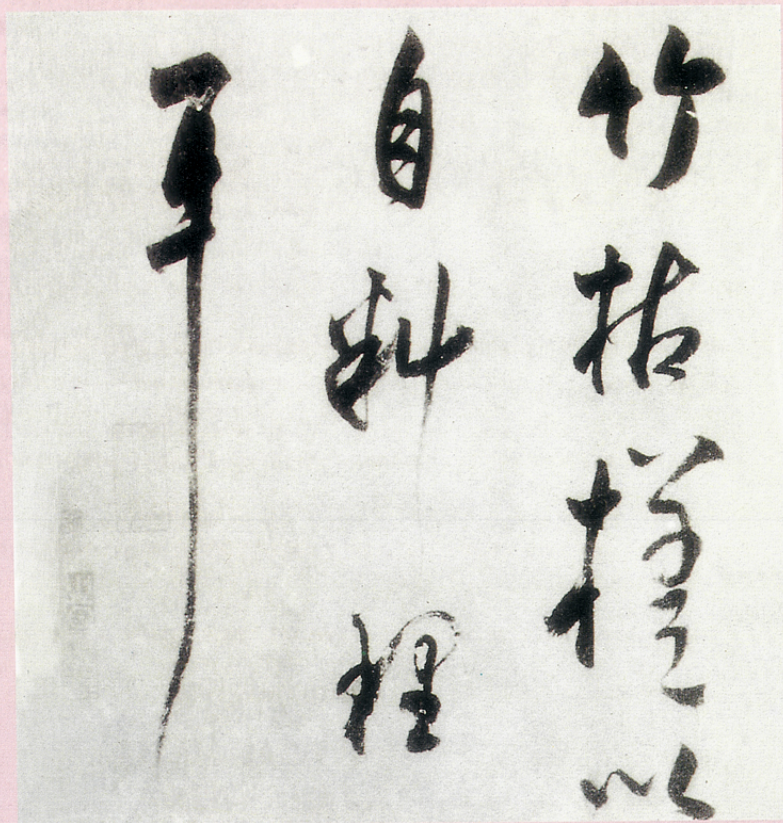 竹枯槎以
自料理
耳